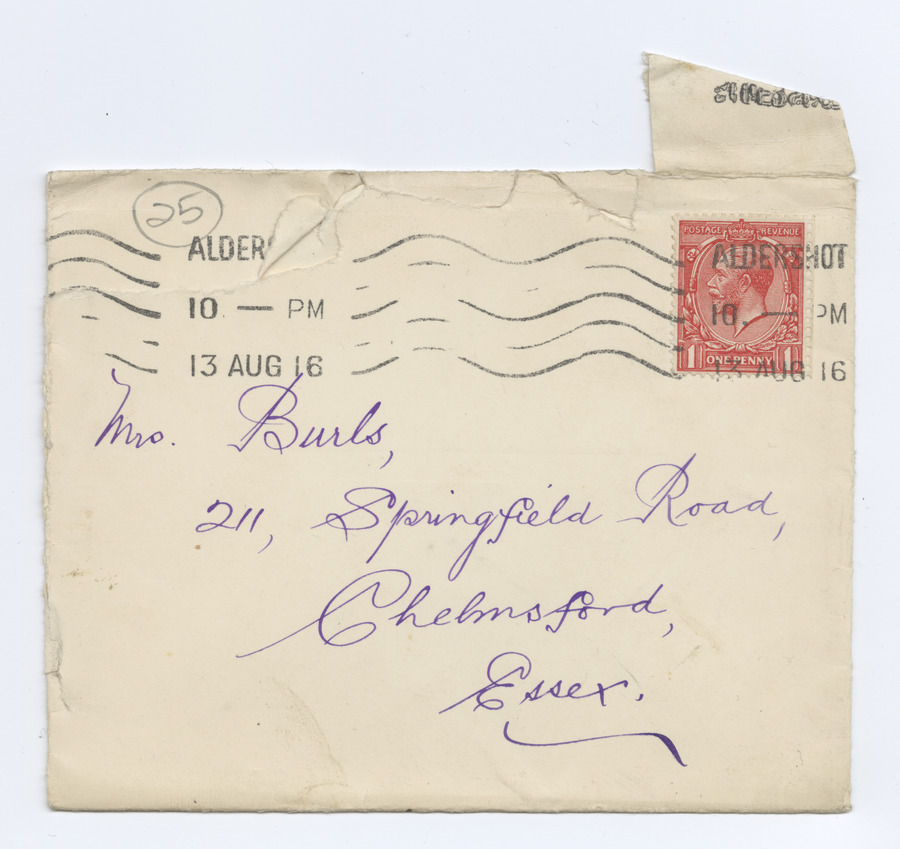 25
ALDER
10. — PM
13 AUG 16
POSTAGE REVENUE
ALDERSHOT
10. — PM
13 AUG 16
1 ONE PENNY 1
Mrs. Burls,
211, Springfield Road,
Chelmsford,
Essex.